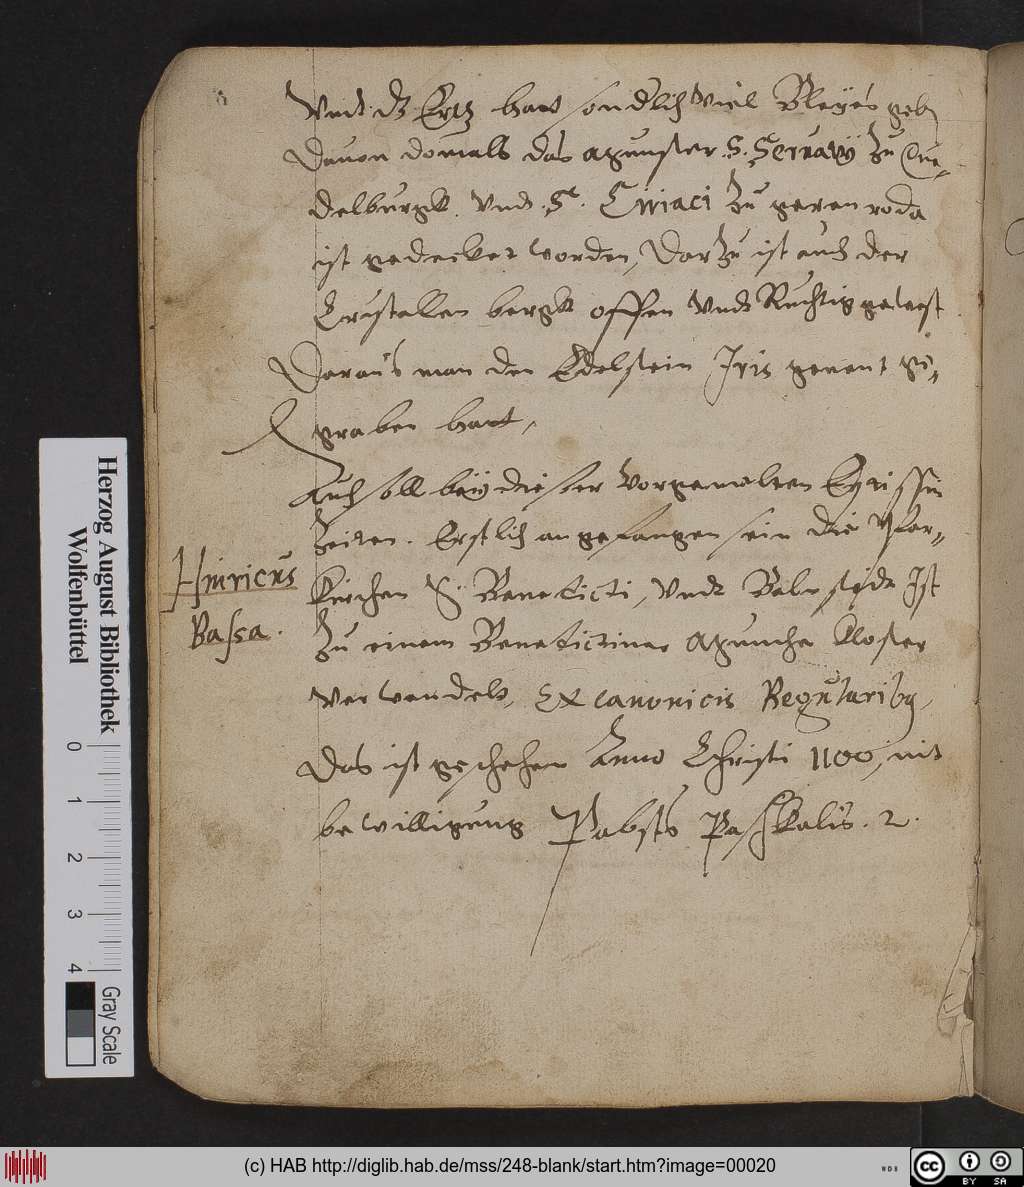 Vndt dz Ertz hatt sondlich viel Bleyes geb
Dauon domals das Munster S. Seruatÿ zu Que-
delburgk vndt S. Ciriaci zu gerenroda
ist gedecket worden, Darzu ist auch der
Cristallen bergk offen vndt Ruchtig gewest
Daraus man den Edelstein Iris genent ge-
graben hatt,
Auch soll beÿ dieser vorgemelten
Zeiten. Erstlich angefangen sein die Pfar-
Kirchen S. Benedicti, vndt Balnstedt Ist
Zu einem Benedictiner Munche Kloster
verwandelt, Ex canonicis Regularibg
Das ist geschehen Anno Christi 1100, mit
bewilligung Pabsts Paschalis. 2.
Hinricus
Bassa.
Herzog August Bibliothek
Wolfenbüttel
0 1 2 3 4
Gray Scale
(c) HAB http://diglib.hab.de/mss/248-blank/start.htm?image=00020
WDB
cc BY SA